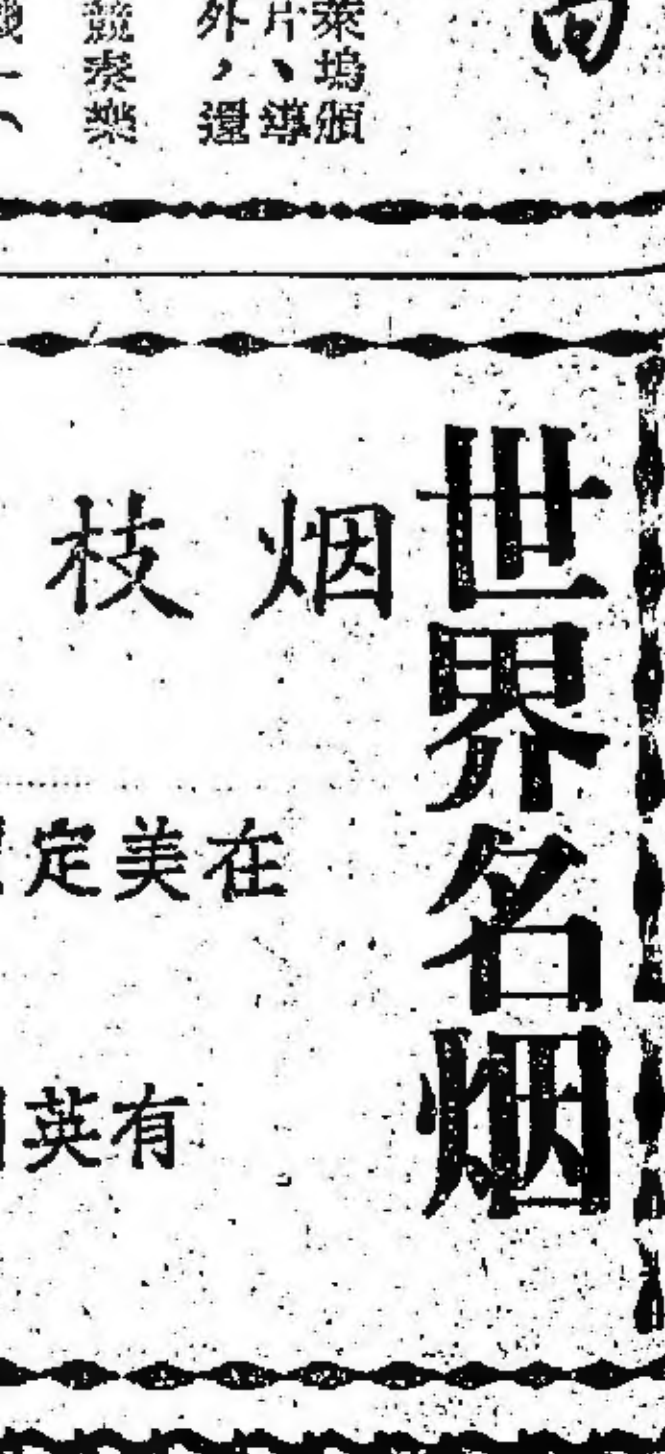 向
萊塢頒
片、導
外，還
競奏樂
世界名烟
烟枝
在美定
有英